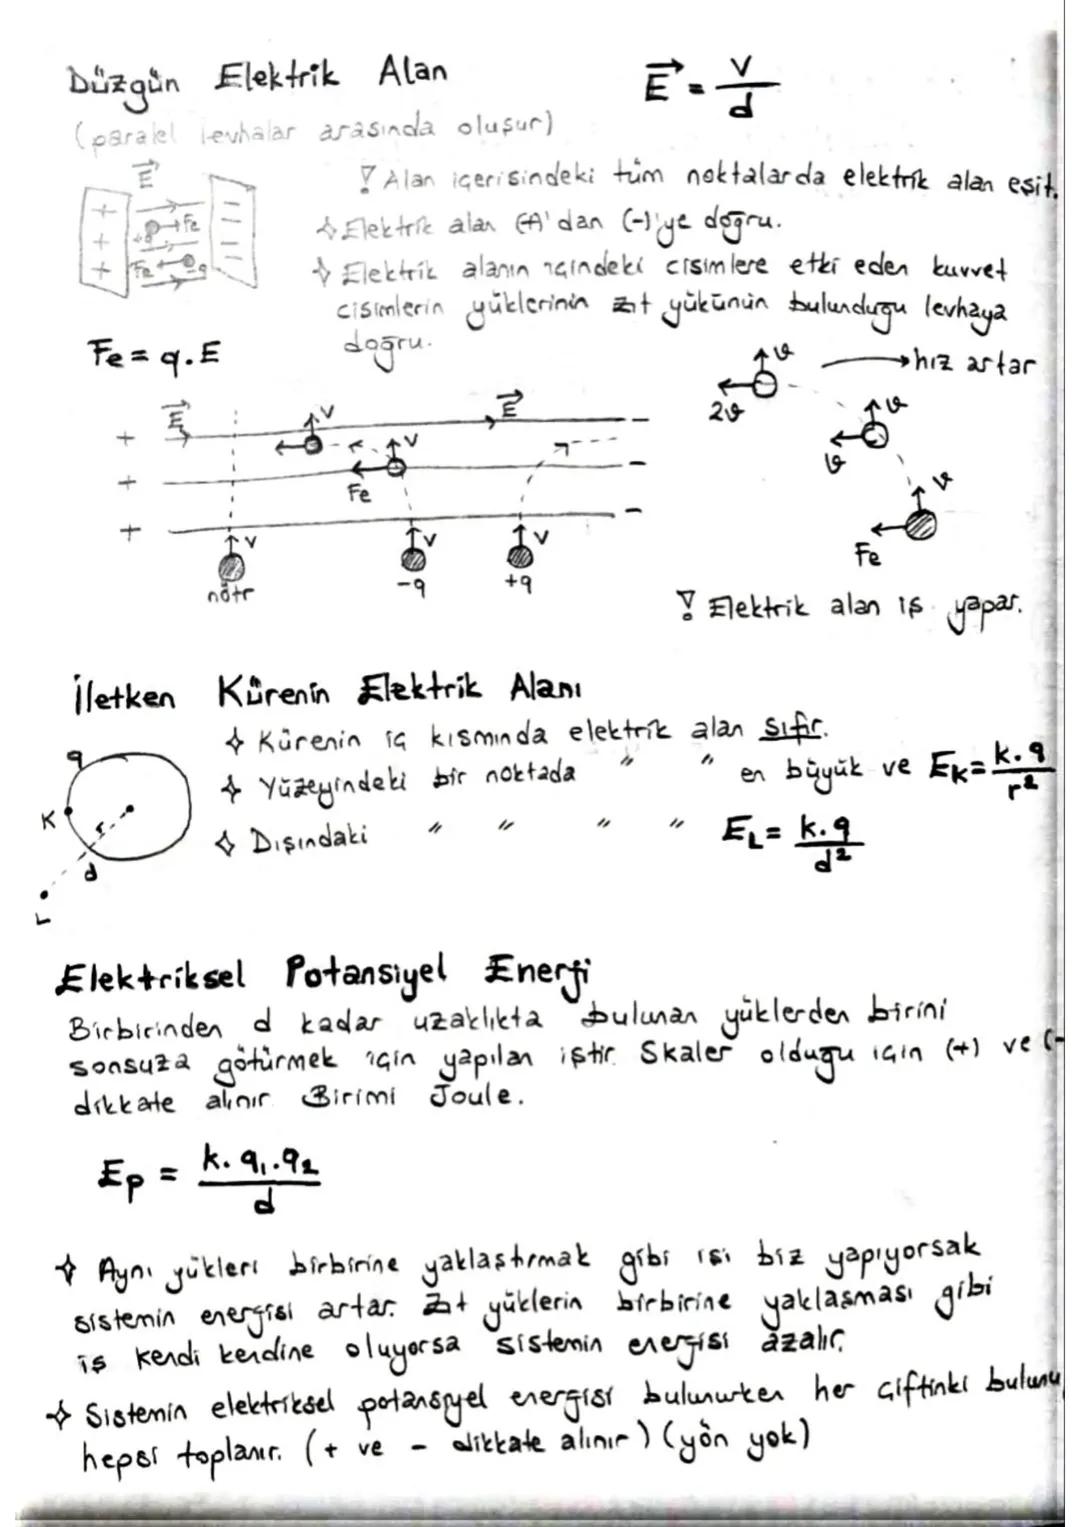 Düzgün Elektrik Alan
E = V/d
(paralel levhalar arasında oluşur)
E
+ + +
Fe
+q
Fe -q
! Alan içerisindeki tüm noktalarda elektrik alan eşit.
✧ Elektrik alan (+)'dan (-)'ye doğru.
✧ Elektrik alanın içindeki cisimlere etki eden kuvvet
cisimlerin yüklerinin zıt yükünün bulunduğu levhaya
doğru.
Fe = q.E
v
hız artar
2v
v
v
v
Fe
E
v
E
+ -
v
+ -
Fe
+ -
v v v
nötr -q +q
! Elektrik alan iş yapar.
İletken Kürenin Elektrik Alanı
✧ Kürenin iç kısmında elektrik alan sıfır.
✧ Yüzeyindeki bir noktada " " en büyük ve EK = k.q/r²
✧ Dışındaki " " " " EL = k.q/d²
q
K
r
d
L
Elektriksel Potansiyel Enerji
Birbirinden d kadar uzaklıkta bulunan yüklerden birini
sonsuza götürmek için yapılan iştir. Skaler olduğu için (+) ve (-
dikkate alınır. Birimi Joule.
Ep = k.q₁.q₂/d
✧ Aynı yükleri birbirine yaklaştırmak gibi işi biz yapıyorsak
sistemin energisi artar. Zıt yüklerin birbirine yaklaşması gibi
iş kendi kendine oluyorsa sistemin energisi azalır.
✧ Sistemin elektriksel potansiyel energisi bulunurken her çiftinki bulunu
hepsi toplanır. (+ ve - dikkate alınır) (yön yok)